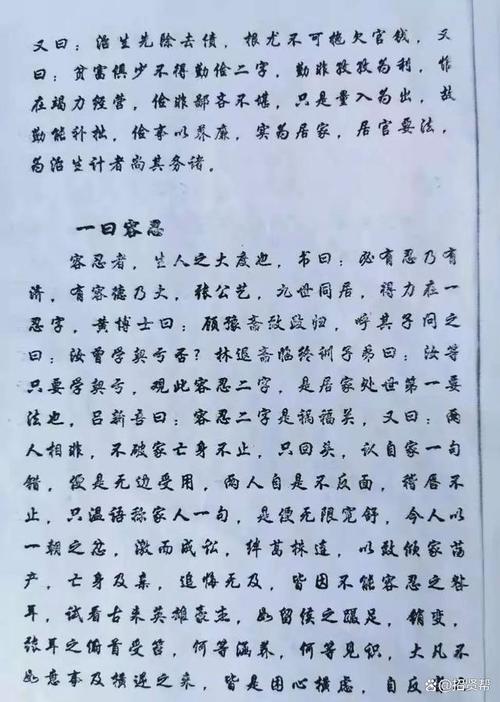 又曰：治生先除去债，根尤不可拖欠官钱，又
曰：贫富俱少不得勤俭二字，勤非孜孜为利，惟
在竭力经营，俭非鄙吝不堪，只是量入为出，故
勤能补拙，俭事以养廉，实为居家，居官要法，
为治生计者尚其务诸。
一曰容忍
容忍者，生人之大度也，书曰：必有忍乃有
济，有容德乃大，张公艺，九世同居，得力在一
忍字，黄博士曰：顾豫斋致政归，呼其子问之
曰：汝曾学契亏否？林退斋临终训子弟曰：汝等
只要学契亏，观此容忍二字，是居家处世第一要
法也，吕新吾曰：容忍二字是祸福关，又曰：两
人相非，不破家亡身不止，只回头，认自家一句
错，便是无边受用，两人自是不反面，稽唇不
止，只温语称家人一句，是便无限宽舒，今人以
一朝之忿，激而成讼，绊葛株连，以致倾家荡
产，亡身及亲，追悔无及，皆因不能容忍之咎
耳，试看古来英雄豪杰，如留侯之蹑足，销变，
张耳之俯首受笞，何等涵养，何等见识，大凡不
如意事及横逆之来，皆是困心横虑，自反
招贤帮